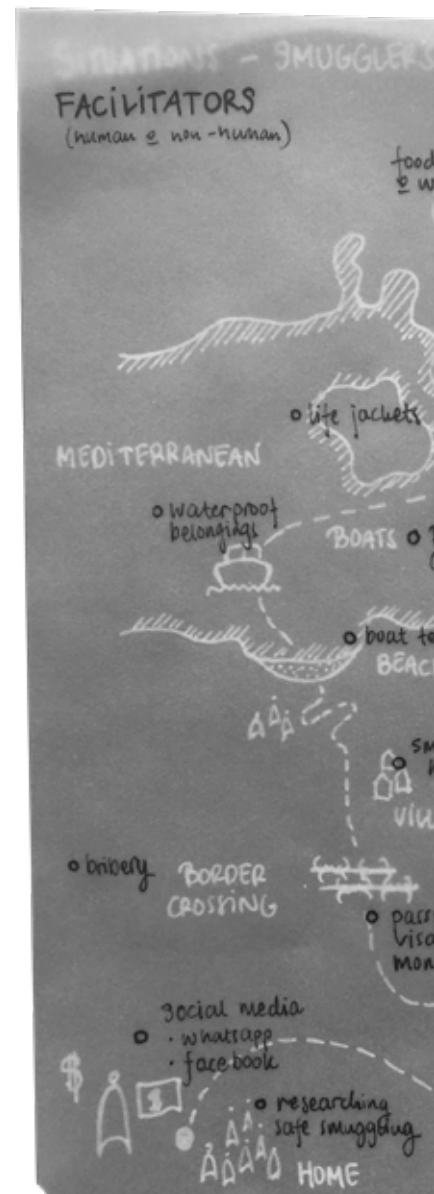 SITUATIONS - SMUGGLERS
FACILITATORS
(human o non-human)
food
o w
o life jackets
MEDITERRANEAN
o waterproof
belongings
BOATS o
o boat to
BEACH
SM
VILL
o bribery
BORDER
CROSSING
o pass
visa
mon
social media
o · whatsapp
· facebook
$
$
o researching
safe smuggling
HOME